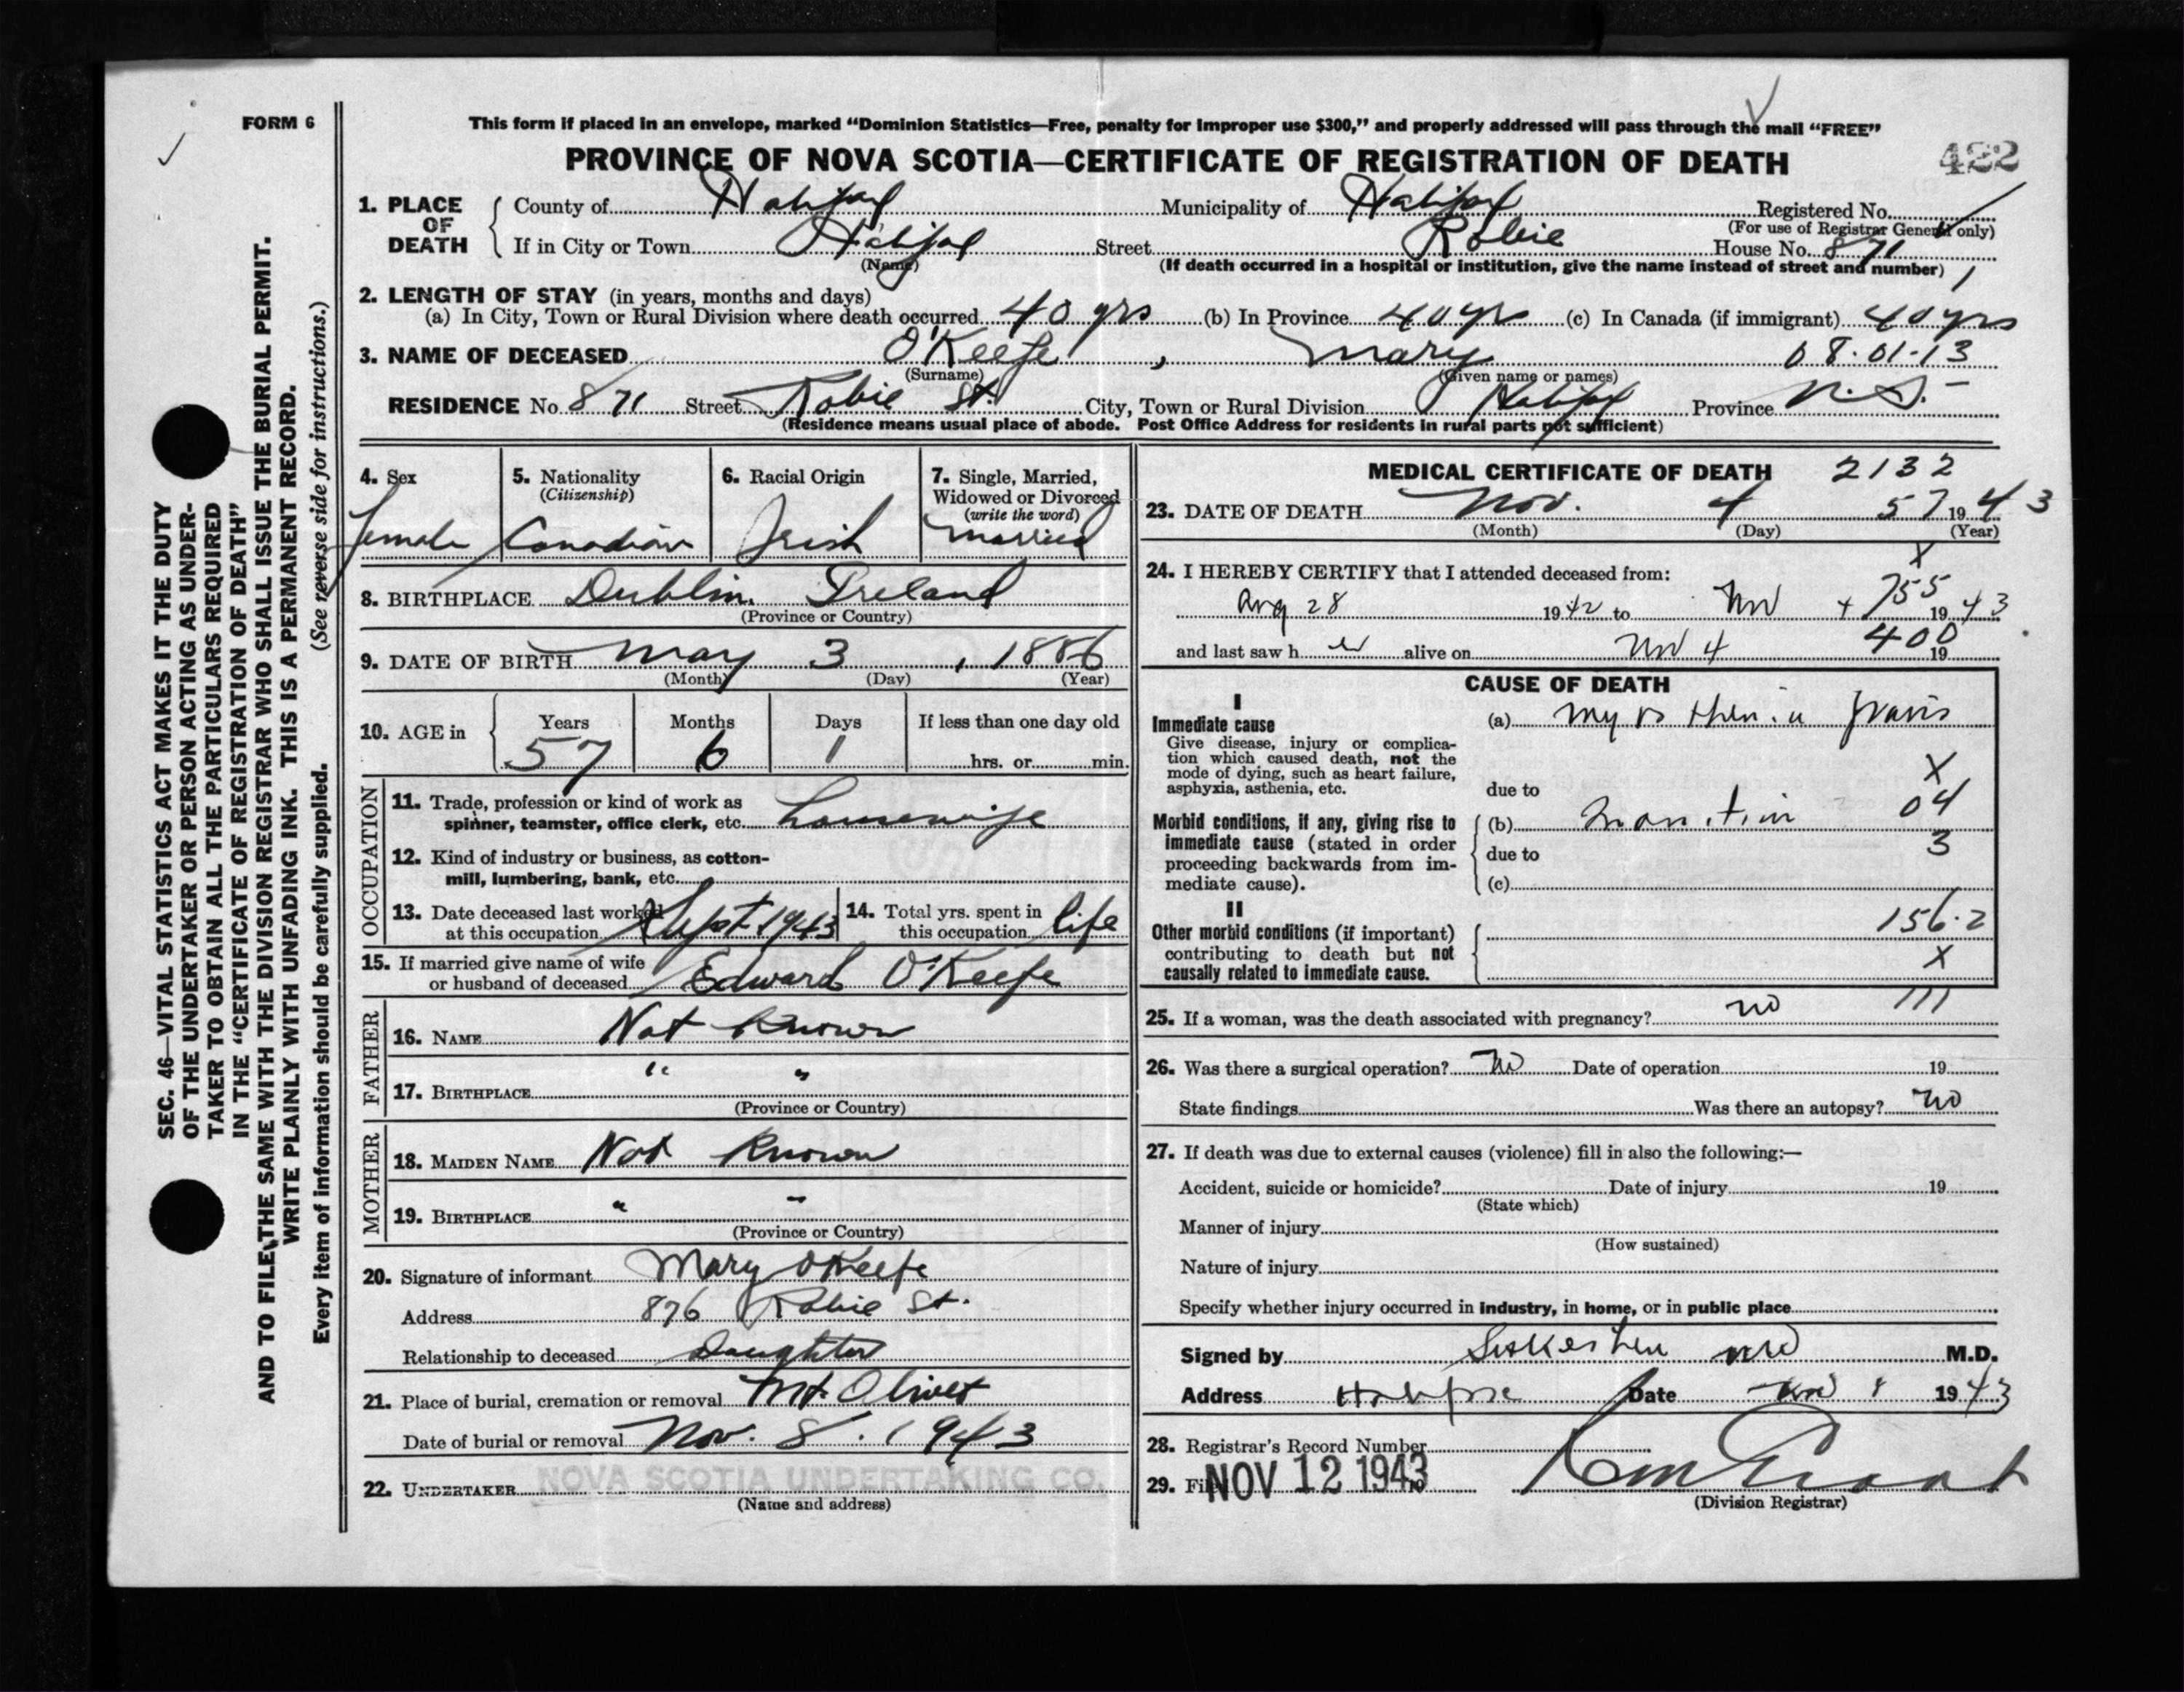 FORM 6
This form if placed in an envelope, marked “Dominion Statistics—Free, penalty for improper use $300,” and properly addressed will pass through the mail “FREE”
PROVINCE OF NOVA SCOTIA—CERTIFICATE OF REGISTRATION OF DEATH
422
1. PLACE OF DEATH
County of Halifax Municipality of Halifax Registered No.
(For use of Registrar General only)
If in City or Town Halifax Street Robie House No. 871
(Name) (If death occurred in a hospital or institution, give the name instead of street and number) 1
2. LENGTH OF STAY (in years, months and days)
(a) In City, Town or Rural Division where death occurred 40 yrs (b) In Province 40 yrs (c) In Canada (if immigrant) 40 yrs
3. NAME OF DECEASED O'Keefe, Mary 08-01-13
(Surname) (Given name or names)
RESIDENCE No. 871 Street Robie St. City, Town or Rural Division Halifax Province N.S.
(Residence means usual place of abode. Post Office Address for residents in rural parts not sufficient)
4. Sex
Female
5. Nationality
(Citizenship)
Canadian
6. Racial Origin
Irish
7. Single, Married,
Widowed or Divorced
(write the word)
Married
8. BIRTHPLACE Dublin, Ireland
(Province or Country)
9. DATE OF BIRTH May 3, 1886
(Month) (Day) (Year)
10. AGE in
Years Months Days If less than one day old
57 6 1 hrs. or min.
OCCUPATION
11. Trade, profession or kind of work as
spinner, teamster, office clerk, etc. housewife
12. Kind of industry or business, as cotton-
mill, lumbering, bank, etc.
13. Date deceased last worked
at this occupation Sept. 1943
14. Total yrs. spent in
this occupation life
15. If married give name of wife
or husband of deceased Edward O'Keefe
FATHER
16. NAME Not Known
17. BIRTHPLACE " "
(Province or Country)
MOTHER
18. MAIDEN NAME Not Known
19. BIRTHPLACE " "
(Province or Country)
20. Signature of informant Mary O'Keefe
Address 876 Robie St.
Relationship to deceased Daughter
21. Place of burial, cremation or removal Mt. Olivet
Date of burial or removal Nov. 8. 1943
22. UNDERTAKER NOVA SCOTIA UNDERTAKING CO.
(Name and address)
MEDICAL CERTIFICATE OF DEATH 2132
23. DATE OF DEATH Nov. 4 57 1943
(Month) (Day) (Year)
X
24. I HEREBY CERTIFY that I attended deceased from:
755
Aug 28 1942 to Nov 4 1943
400
and last saw h er alive on Nov 4 19
CAUSE OF DEATH
I
Immediate cause
Give disease, injury or complica-
tion which caused death, not the
mode of dying, such as heart failure,
asphyxia, asthenia, etc.
(a) Myasthenia gravis
X
due to
04
Morbid conditions, if any, giving rise to
immediate cause (stated in order
proceeding backwards from im-
mediate cause).
(b)
3
due to
(c)
II
156.2
Other morbid conditions (if important)
contributing to death but not
causally related to immediate cause.
X
111
25. If a woman, was the death associated with pregnancy? no
26. Was there a surgical operation? No Date of operation 19
State findings Was there an autopsy? no
27. If death was due to external causes (violence) fill in also the following:—
Accident, suicide or homicide? Date of injury 19
(State which)
Manner of injury
(How sustained)
Nature of injury
Specify whether injury occurred in industry, in home, or in public place
Signed by M.D.
Address Halifax Date Nov 8 1943
28. Registrar's Record Number
29. Filed NOV 12 1943
(Division Registrar)
SEC. 46—VITAL STATISTICS ACT MAKES IT THE DUTY
OF THE UNDERTAKER OR PERSON ACTING AS UNDER-
TAKER TO OBTAIN ALL THE PARTICULARS REQUIRED
IN THE “CERTIFICATE OF REGISTRATION OF DEATH”
AND TO FILE THE SAME WITH THE DIVISION REGISTRAR WHO SHALL ISSUE THE BURIAL PERMIT.
WRITE PLAINLY WITH UNFADING INK. THIS IS A PERMANENT RECORD.
Every item of information should be carefully supplied. (See reverse side for instructions.)